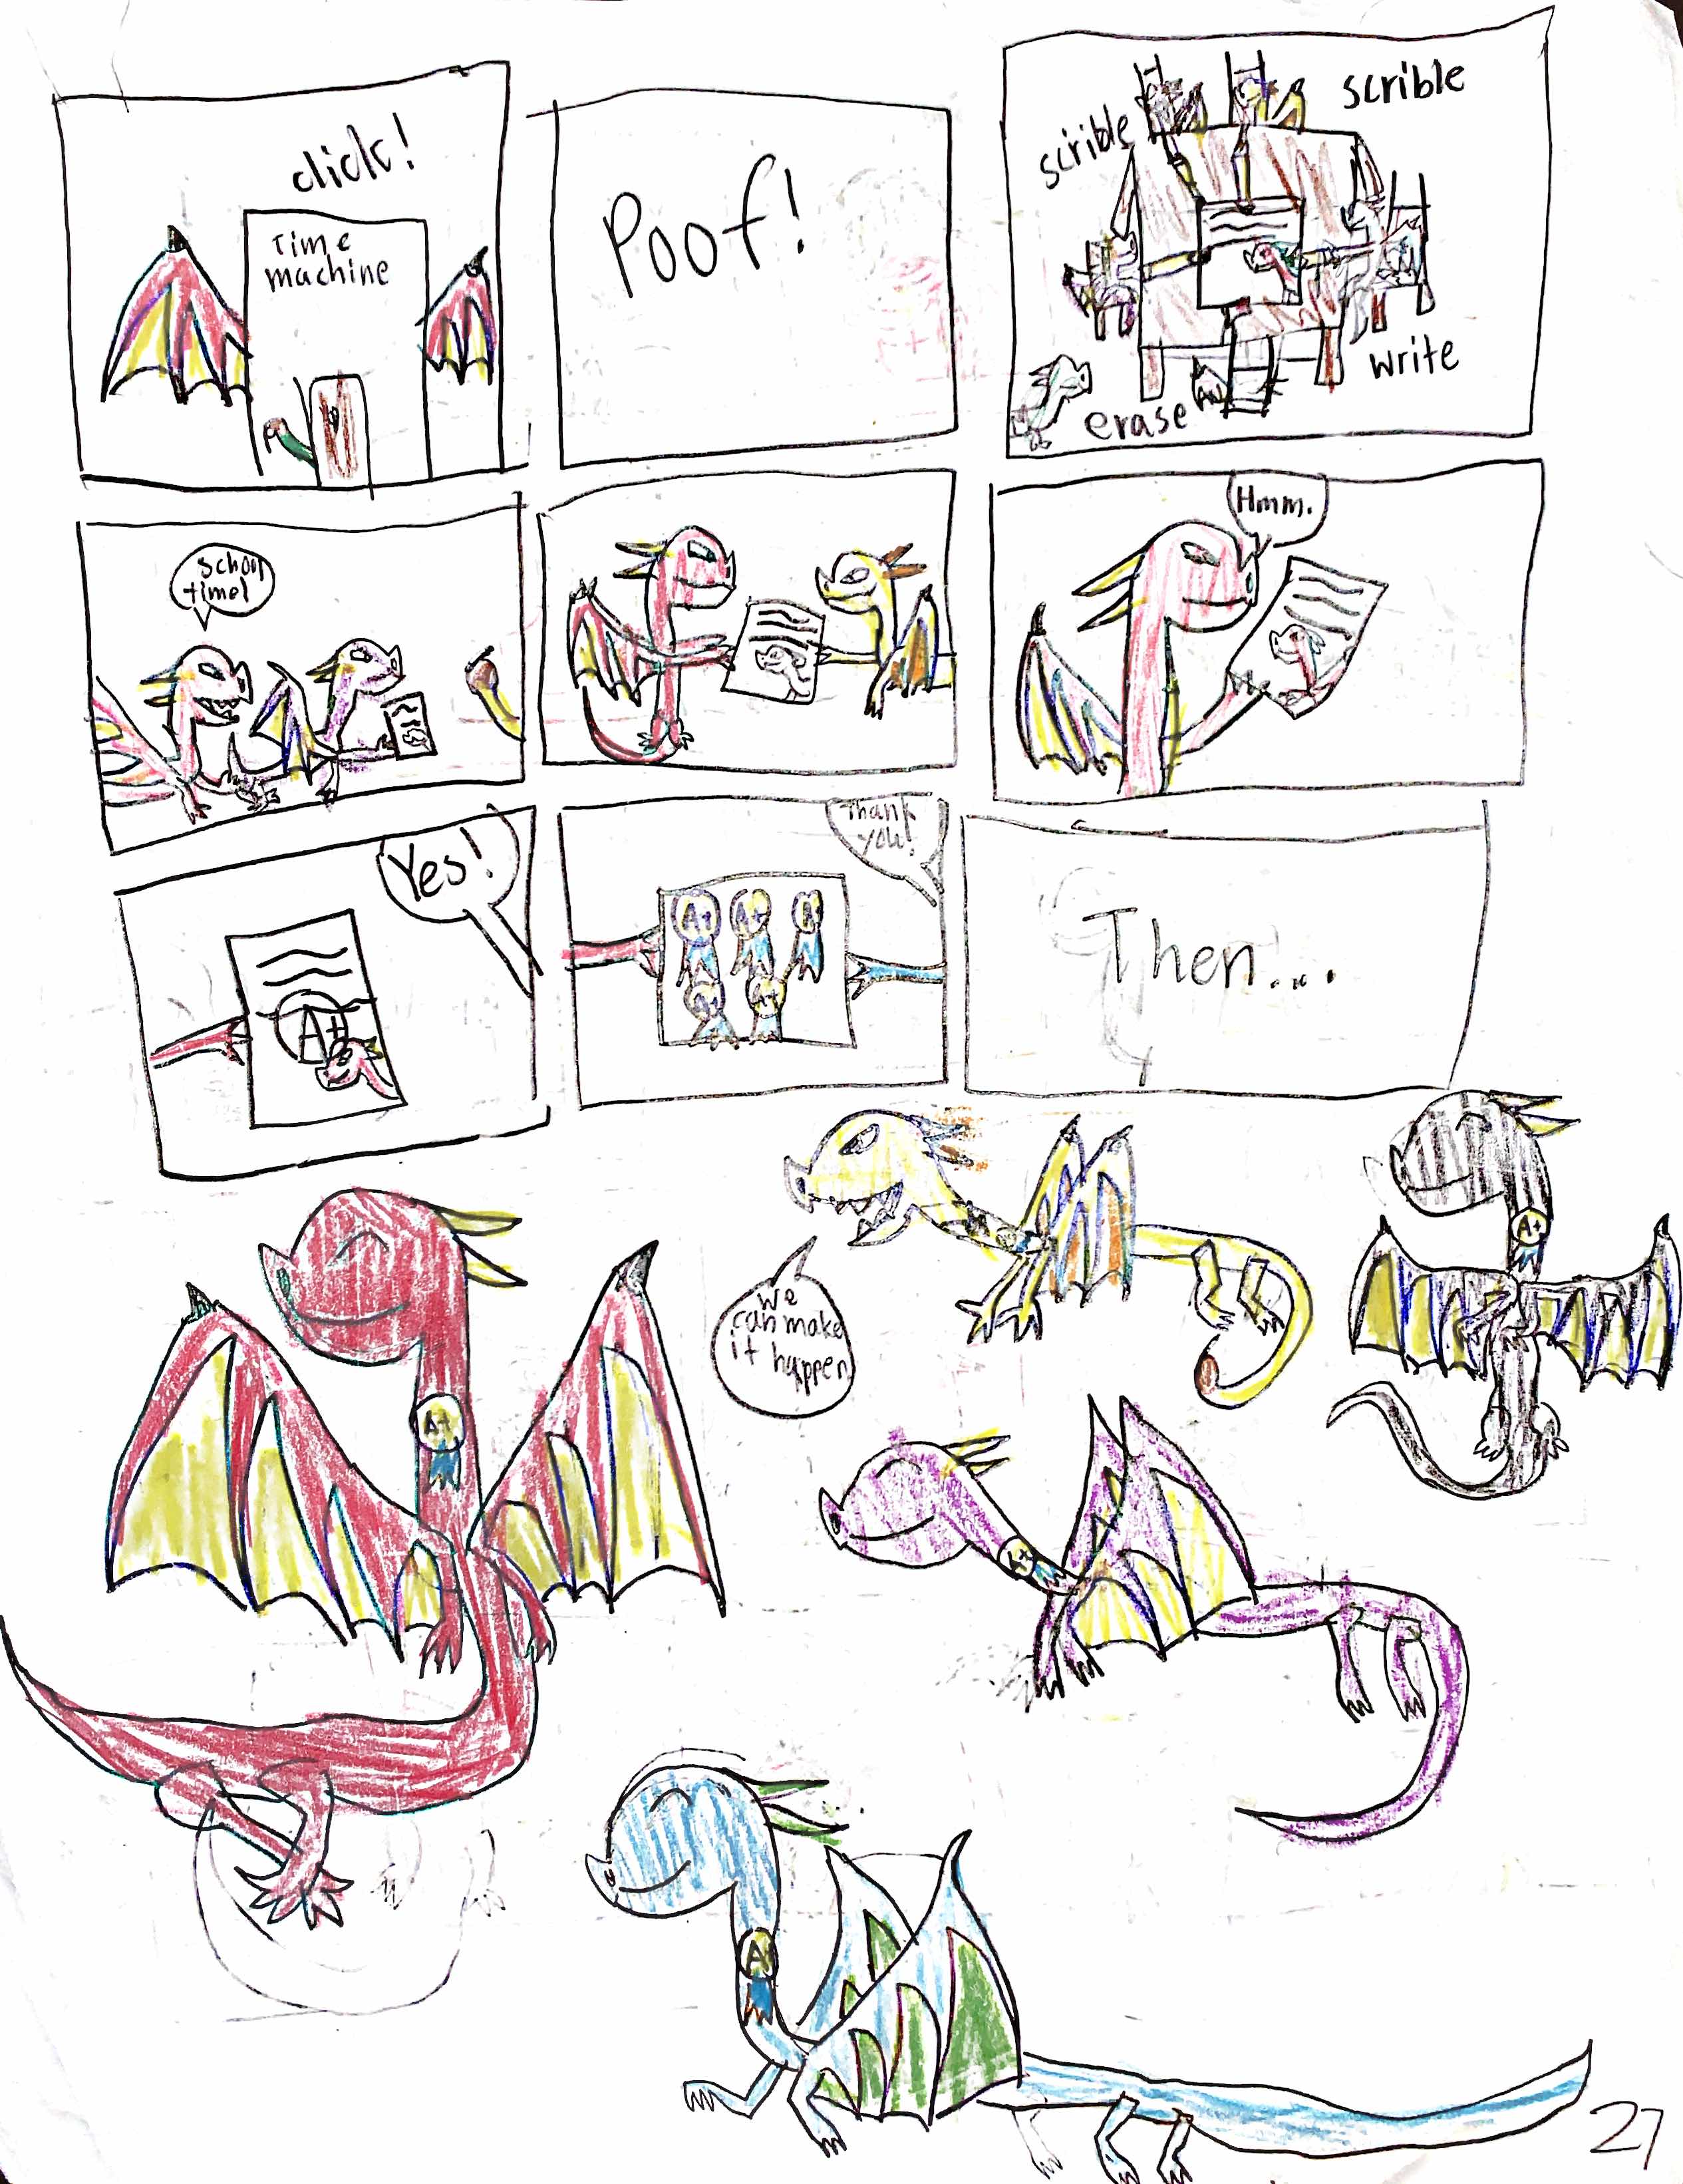 click!
Time
machine
Poof!
scrible
scrible
write
erase
School
time!
Hmm.
Yes!
A+
Thank
you!
A+
A+
A+
A+
A+
Then...
We
can make
it happen
A+
A+
A+
A+
27